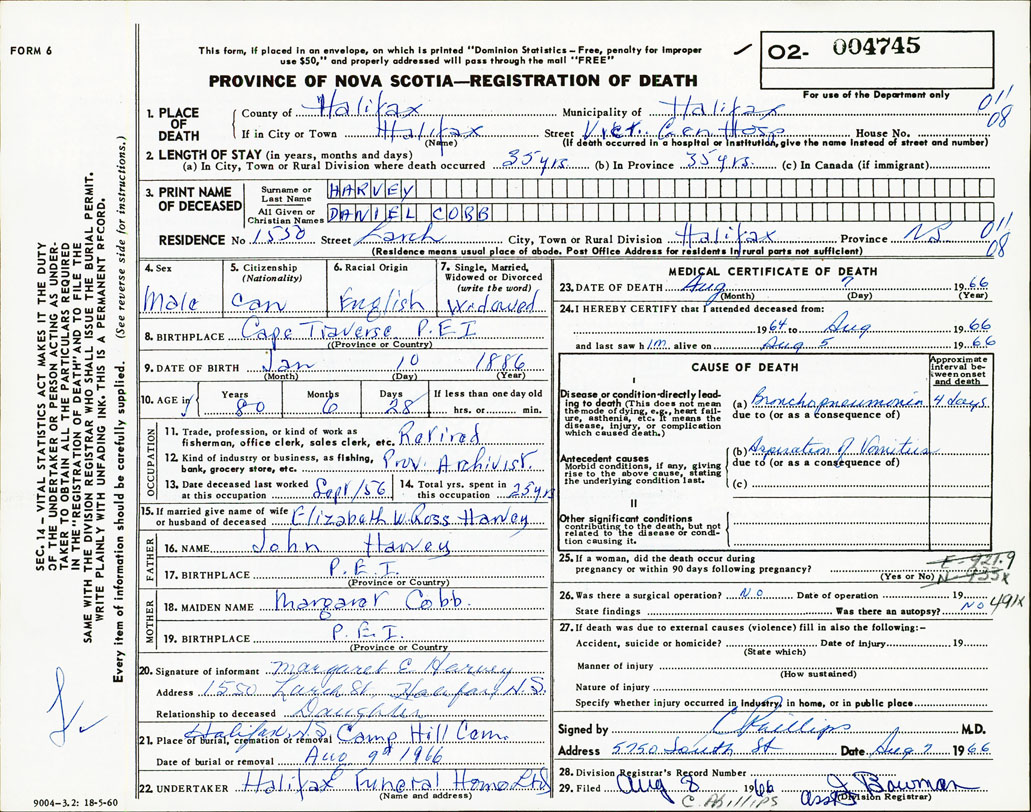 FORM 6
This form, if placed in an envelope, on which is printed "Dominion Statistics—Free, penalty for improper
use $50," and properly addressed will pass through the mail "FREE"
O2- 004745
For use of the Department only
PROVINCE OF NOVA SCOTIA—REGISTRATION OF DEATH
011
08
1. PLACE OF DEATH
County of Halifax Municipality of Halifax
If in City or Town Halifax Street Vict. Gen Hosp House No.
(Name) (If death occurred in a hospital or institution, give the name instead of street and number)
2. LENGTH OF STAY (in years, months and days)
(a) In City, Town or Rural Division where death occurred 35 yrs (b) In Province 35 yrs. (c) In Canada (if immigrant)
3. PRINT NAME OF DECEASED
Surname or Last Name HARVEY
All Given or Christian Names DANIEL COBB
RESIDENCE No 1550 Street Larch City, Town or Rural Division Halifax Province N.S.
011
08
(Residence means usual place of abode. Post Office Address for residents in rural parts not sufficient)
4. Sex Male
5. Citizenship (Nationality) Can
6. Racial Origin English
7. Single, Married, Widowed or Divorced (write the word) Widowed
8. BIRTHPLACE Cape Traverse P.E.I
(Province or Country)
9. DATE OF BIRTH Jan 10 1886
(Month) (Day) (Year)
10. AGE in Years 80 Months 6 Days 28 If less than one day old
hrs. or min.
OCCUPATION
11. Trade, profession, or kind of work as
fisherman, office clerk, sales clerk, etc. Retired
12. Kind of industry or business, as fishing,
bank, grocery store, etc. Prov. Archivist.
13. Date deceased last worked at this occupation Sept/56 14. Total yrs. spent in this occupation 25 yrs
15. If married give name of wife
or husband of deceased Elizabeth W. Ross Harvey
FATHER
16. NAME John Harvey
17. BIRTHPLACE P.E.I.
(Province or Country)
MOTHER
18. MAIDEN NAME Margaret Cobb.
19. BIRTHPLACE P.E.I.
(Province or Country)
20. Signature of informant Margaret C Harvey
Address 1550 Larch St, Halifax N.S.
Relationship to deceased Daughter
Halifax, N.S
21. Place of burial, cremation or removal Camp Hill Cem.
Date of burial or removal Aug 9th 1966
22. UNDERTAKER Halifax Funeral Home Ltd
(Name and address)
9004-3.2: 18-5-60
MEDICAL CERTIFICATE OF DEATH
23. DATE OF DEATH Aug 7 1966
(Month) (Day) (Year)
24. I HEREBY CERTIFY that I attended deceased from:
1964 to Aug 1966
and last saw him alive on Aug 5 1966
CAUSE OF DEATH
Approximate interval between onset and death
I
Disease or condition directly leading to death (This does not mean the mode of dying, e.g., heart failure, asthenia, etc. It means the disease, injury, or complication which caused death.)
(a) Bronchopneumonia 4 days
due to (or as a consequence of)
Antecedent causes
Morbid conditions, if any, giving rise to the above cause, stating the underlying condition last.
(b) Aspiration of Vomitus
due to (or as a consequence of)
(c)
II
Other significant conditions
contributing to the death, but not related to the disease or condition causing it.
25. If a woman, did the death occur during
pregnancy or within 90 days following pregnancy?
(Yes or No)
E-921.9
N-933X
491X
26. Was there a surgical operation? No Date of operation 19
State findings Was there an autopsy? No
27. If death was due to external causes (violence) fill in also the following:-
Accident, suicide or homicide? Date of injury 19
(State which)
Manner of injury
(How sustained)
Nature of injury
Specify whether injury occurred in industry, in home, or in public place
Signed by C Phillips M.D.
Address 5750 South St Date Aug 7 1966
28. Division Registrar's Record Number
29. Filed Aug 8 1966 J Bowman
C Phillips asst (Division Registrar)
SEC. 14 – VITAL STATISTICS ACT MAKES IT THE DUTY
OF THE UNDERTAKER OR PERSON ACTING AS UNDER-
TAKER TO OBTAIN ALL THE PARTICULARS REQUIRED
IN THE "REGISTRATION OF DEATH" AND TO FILE THE
SAME WITH THE DIVISION REGISTRAR WHO SHALL ISSUE THE BURIAL PERMIT.
WRITE PLAINLY WITH UNFADING INK. THIS IS A PERMANENT RECORD.
Every item of information should be carefully supplied. (See reverse side for instructions.)